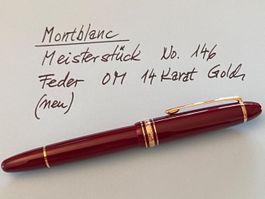 Montblanc
Meisterstück No. 146
Feder OM 14 Karat Gold
(neu)